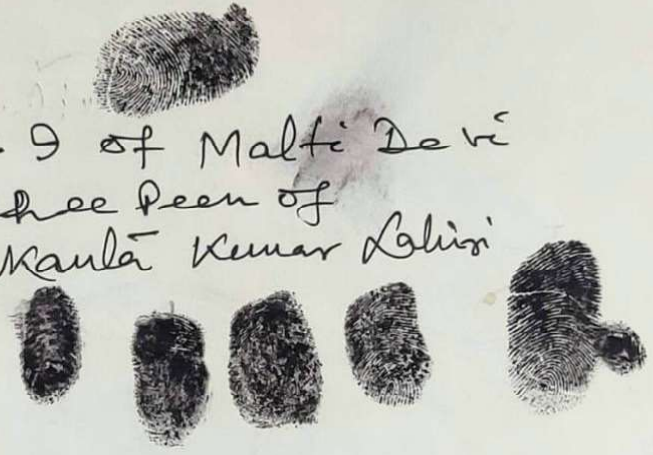 . 9 of Malti Devi
hee Peen of
Kanta Kumar Lahiri